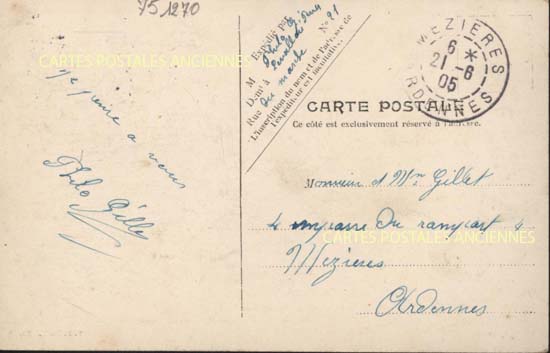 751270
Expédié par
M Philo Gilles
Demt à Levallois
Rue du marché No 21
L'inscription du nom et de l'adresse de
l'expéditeur est facultative.
MEZIERES
6 *
21 -6
05
ARDENNES
CARTE POSTALE
Ce côté est exclusivement réservé à l'adresse.
je pense a vous
Philo Gilles
Monsieur et Mme Gillet
4 impasse du rampart 4
CARTES POSTALES ANCIENNES
CARTES POSTALES ANCIENNES
Mezieres
Ardennes